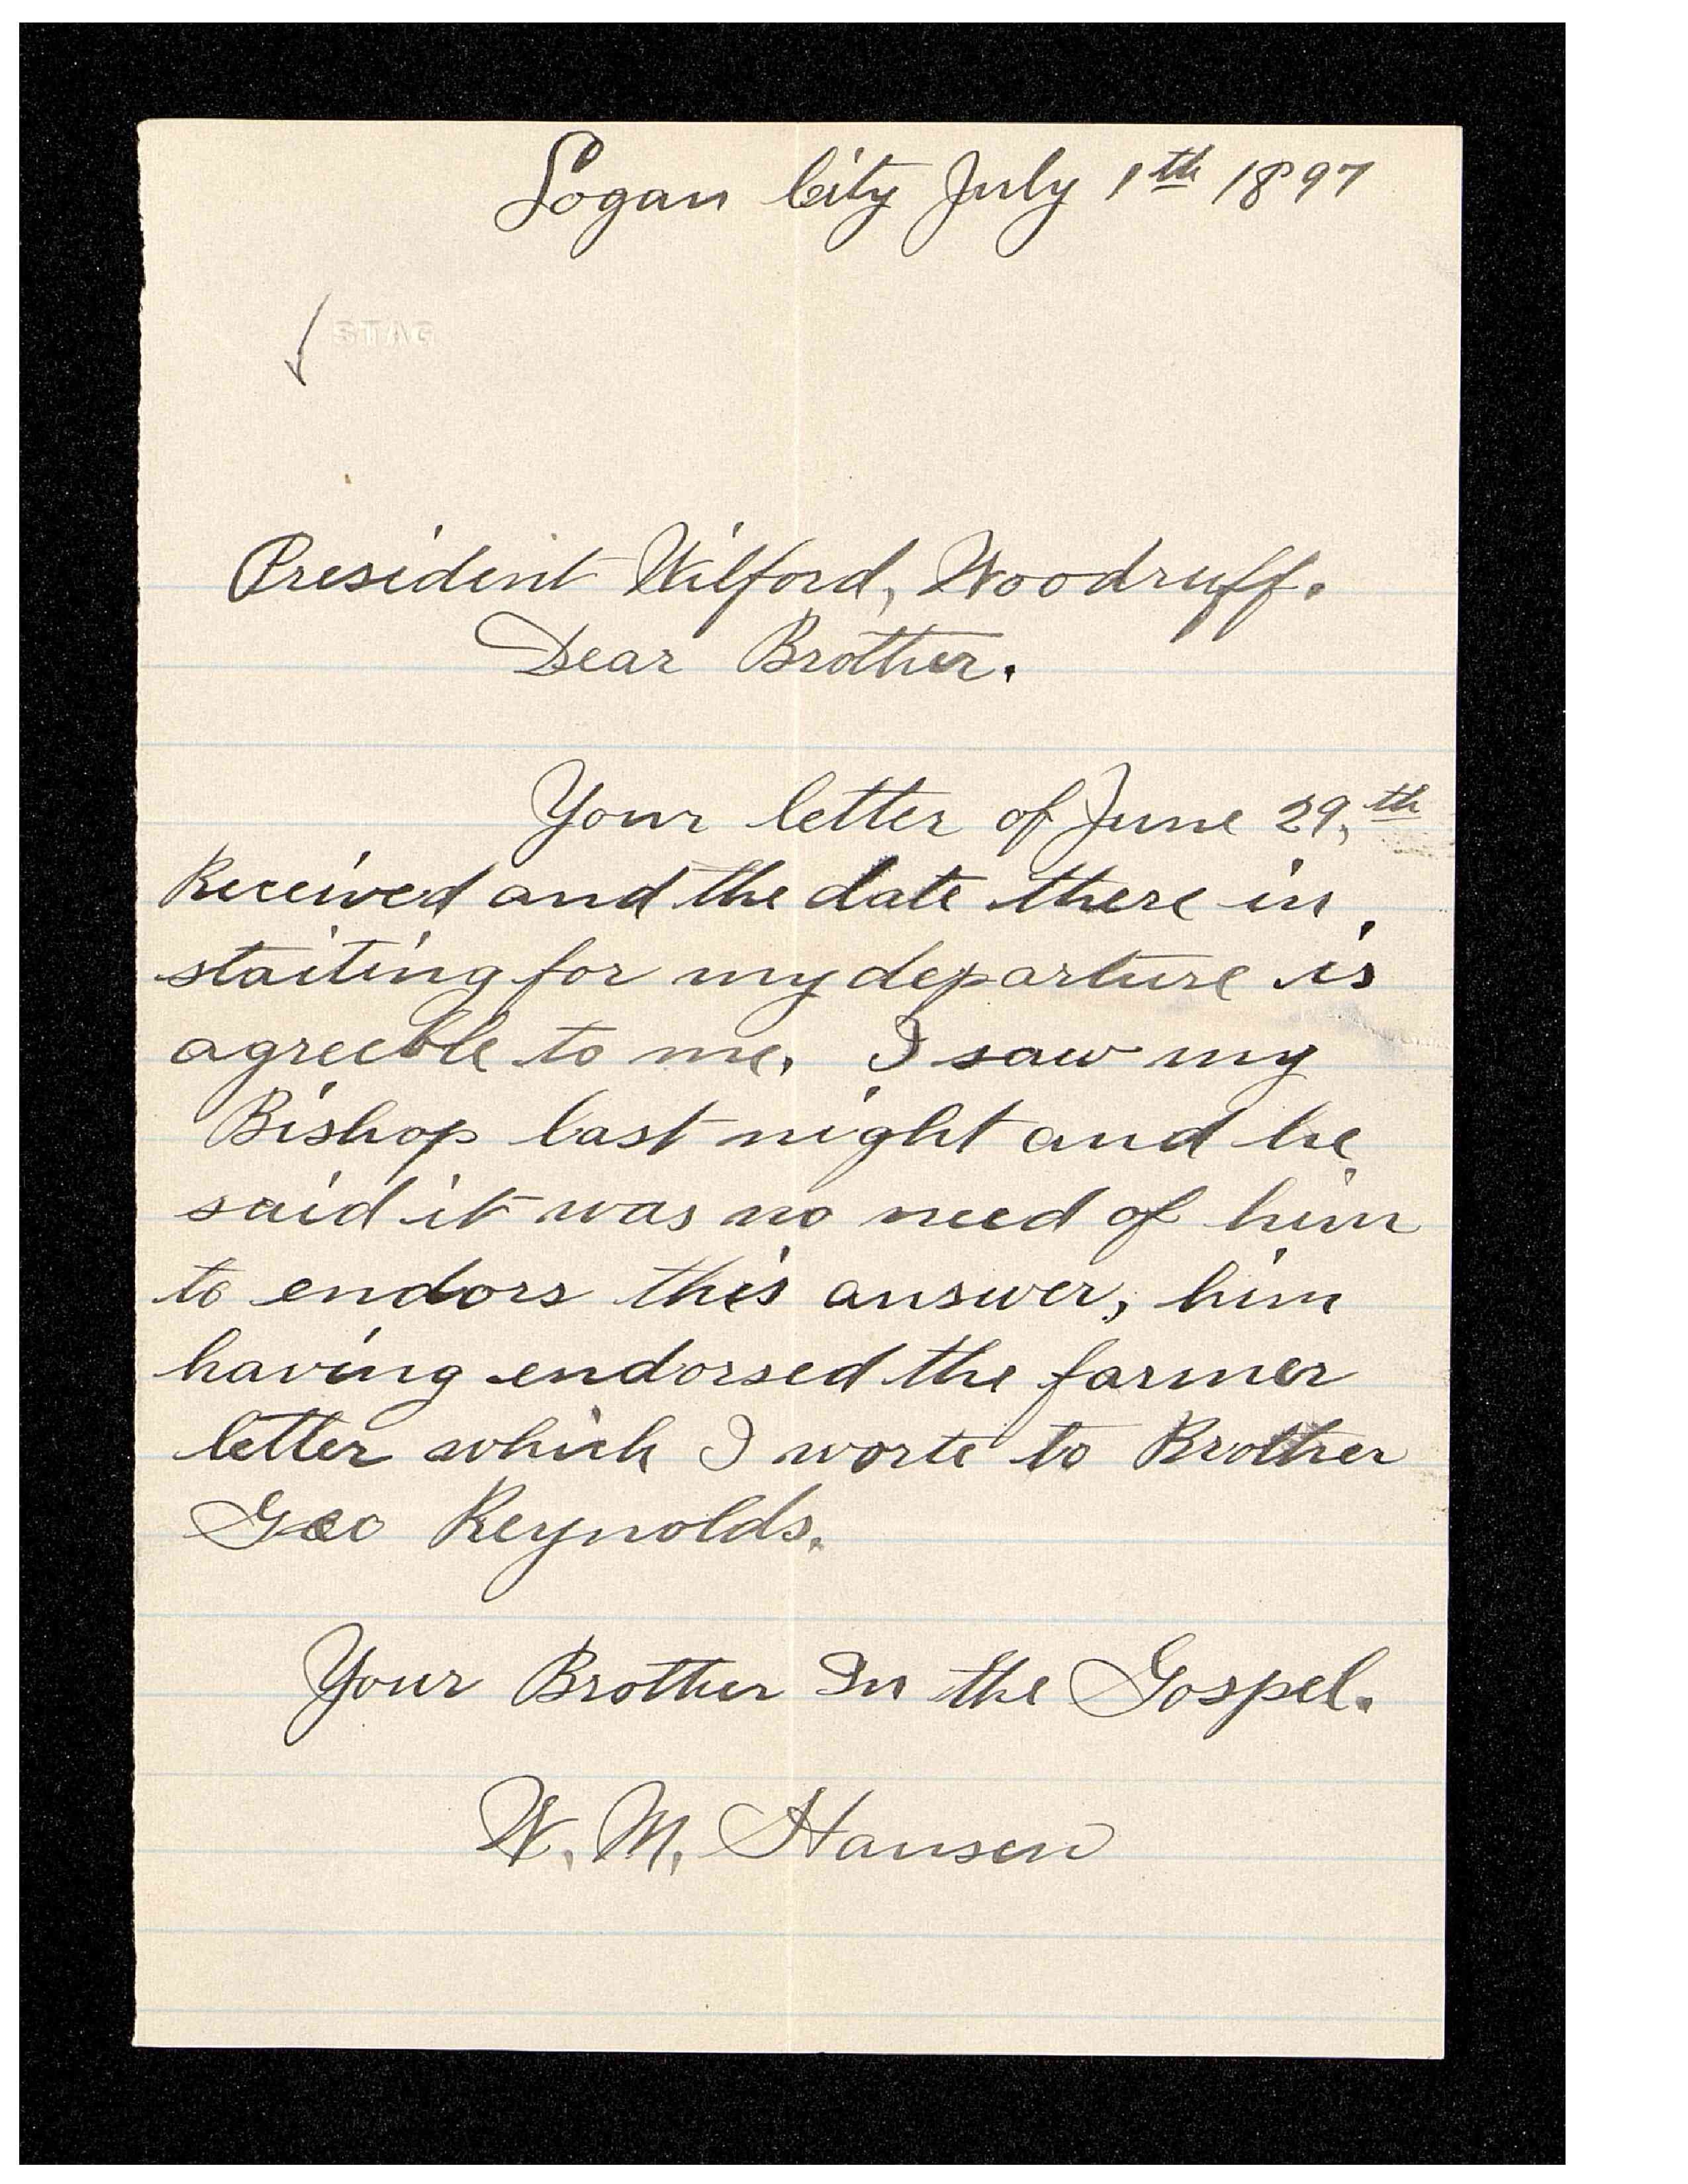 Logan City July 1th 1897
STAG
President Wilford, Woodruff.
Dear Brother.
Your letter of June 29,th
Received and the date there in
staiting for my departure is
agreeble to me. I saw my
Bishop last night and he
said it was no need of him
to endors this answer, him
having endorsed the farmer
letter which I worte to Brother
Geo Reynolds.
Your Brother In the Gospel.
W. M. Hansen